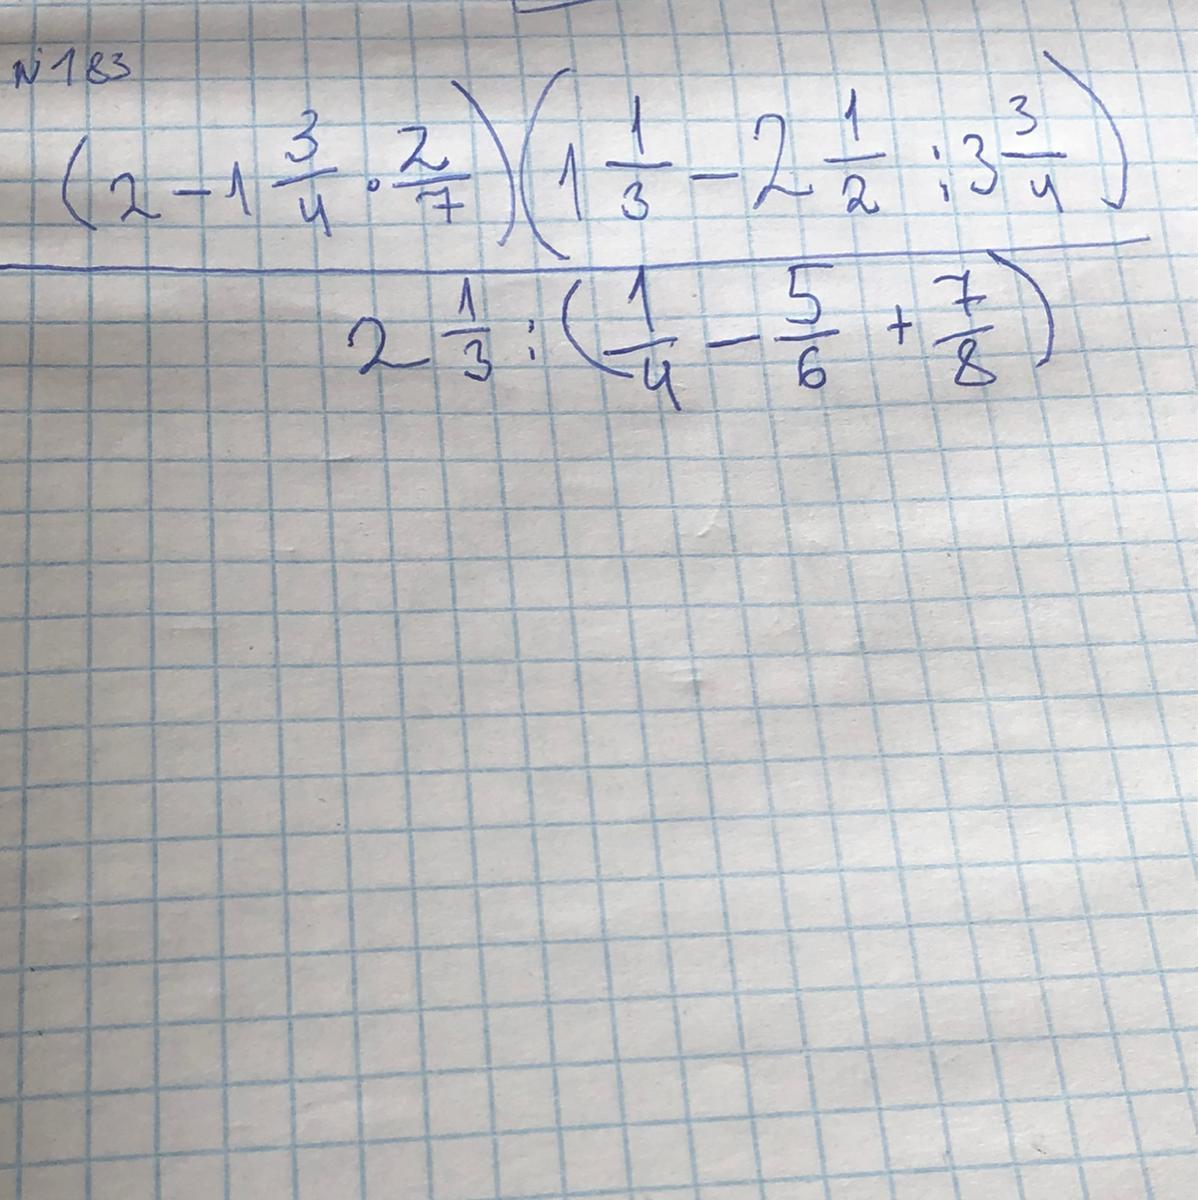 N 183
(2 - 1 3/4 · 2/7)(1 1/3 - 2 1/2 : 3 3/4)
2 1/3 : (1/4 - 5/6 + 7/8)